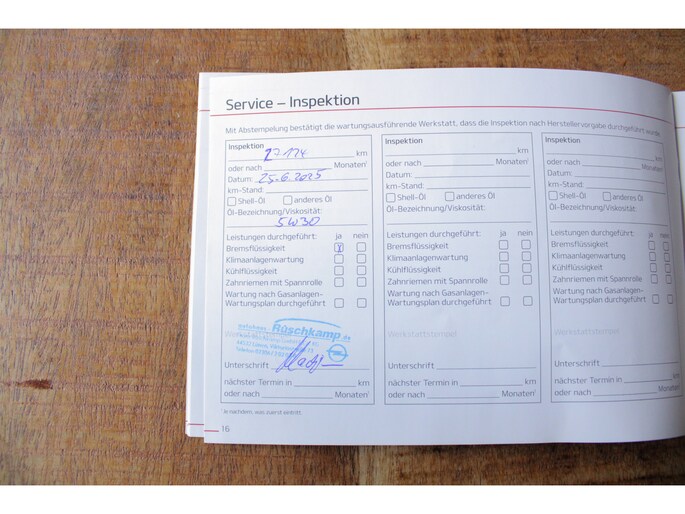 Service – Inspektion
Mit Abstempelung bestätigt die wartungsausführende Werkstatt, dass die Inspektion nach Herstellervorgabe durchgeführt wurde.
Inspektion
27124 km
oder nach Monaten¹
Datum: 25.6.2025
km-Stand:
Shell-Öl anderes Öl
Öl-Bezeichnung/Viskosität:
5W30
Leistungen durchgeführt: ja nein
Bremsflüssigkeit
Klimaanlagenwartung
Kühlflüssigkeit
Zahnriemen mit Spannrolle
Wartung nach Gasanlagen-
Wartungsplan durchgeführt
autohaus Rüschkamp.de
Unterschrift
nächster Termin in km
oder nach Monaten¹
Inspektion
km
oder nach Monaten¹
Datum:
km-Stand:
Shell-Öl anderes Öl
Öl-Bezeichnung/Viskosität:
Leistungen durchgeführt: ja nein
Bremsflüssigkeit
Klimaanlagenwartung
Kühlflüssigkeit
Zahnriemen mit Spannrolle
Wartung nach Gasanlagen-
Wartungsplan durchgeführt
Werkstattstempel
Unterschrift
nächster Termin in km
oder nach Monaten¹
Inspektion
km
oder nach Monaten¹
Datum:
km-Stand:
Shell-Öl anderes Öl
Öl-Bezeichnung/Viskosität:
Leistungen durchgeführt: ja nein
Bremsflüssigkeit
Klimaanlagenwartung
Kühlflüssigkeit
Zahnriemen mit Spannrolle
Wartung nach Gasanlagen-
Wartungsplan durchgeführt
Werkstattstempel
Unterschrift
nächster Termin in km
oder nach Monaten¹
¹ je nachdem, was zuerst eintritt
16